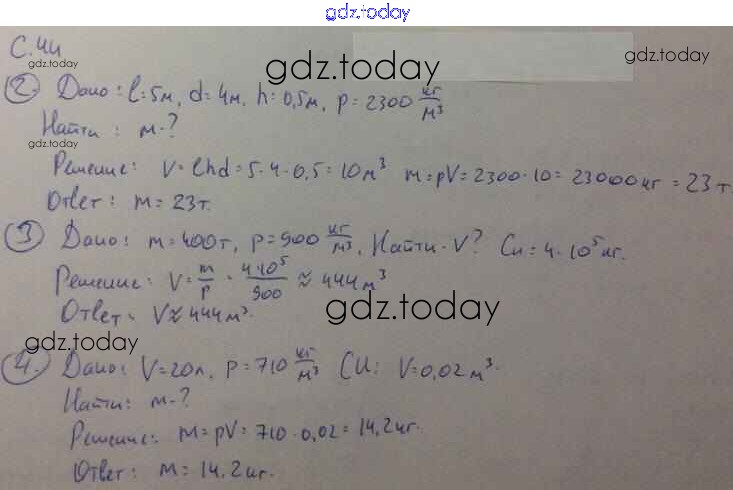 gdz.today
С.44
gdz.today
gdz.today
② Дано: l=5м, d=4м, h=0,5м, ρ=2300 кг/м³
Найти: m-?
gdz.today
Решение: V=lhd=5·4·0,5=10м³ m=ρV=2300·10=23000кг=23т
Ответ: m=23т.
③ Дано: m=400т, ρ=900 кг/м³, Найти-V? Си=4·10⁵кг.
Решение: V=m/ρ=4·10⁵/900≈444м³
Ответ: V≈444м³.
gdz.today
gdz.today
④. Дано: V=20л, ρ=710 кг/м³ СИ: V=0,02м³.
Найти: m-?
Решение: m=ρV=710·0,02=14,2кг.
Ответ: m=14,2кг.